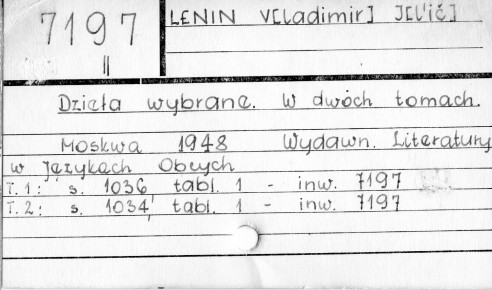 7197
II
LENIN V[ladimir] J[l'ič]
Dzieła wybrane. W dwóch tomach.
Moskwa 1948 Wydawn. Literatury
w Językach Obcych
T. 1: s. 1036, tabl. 1 - inw. 7197
T. 2: s. 1034, tabl. 1 - inw. 7197